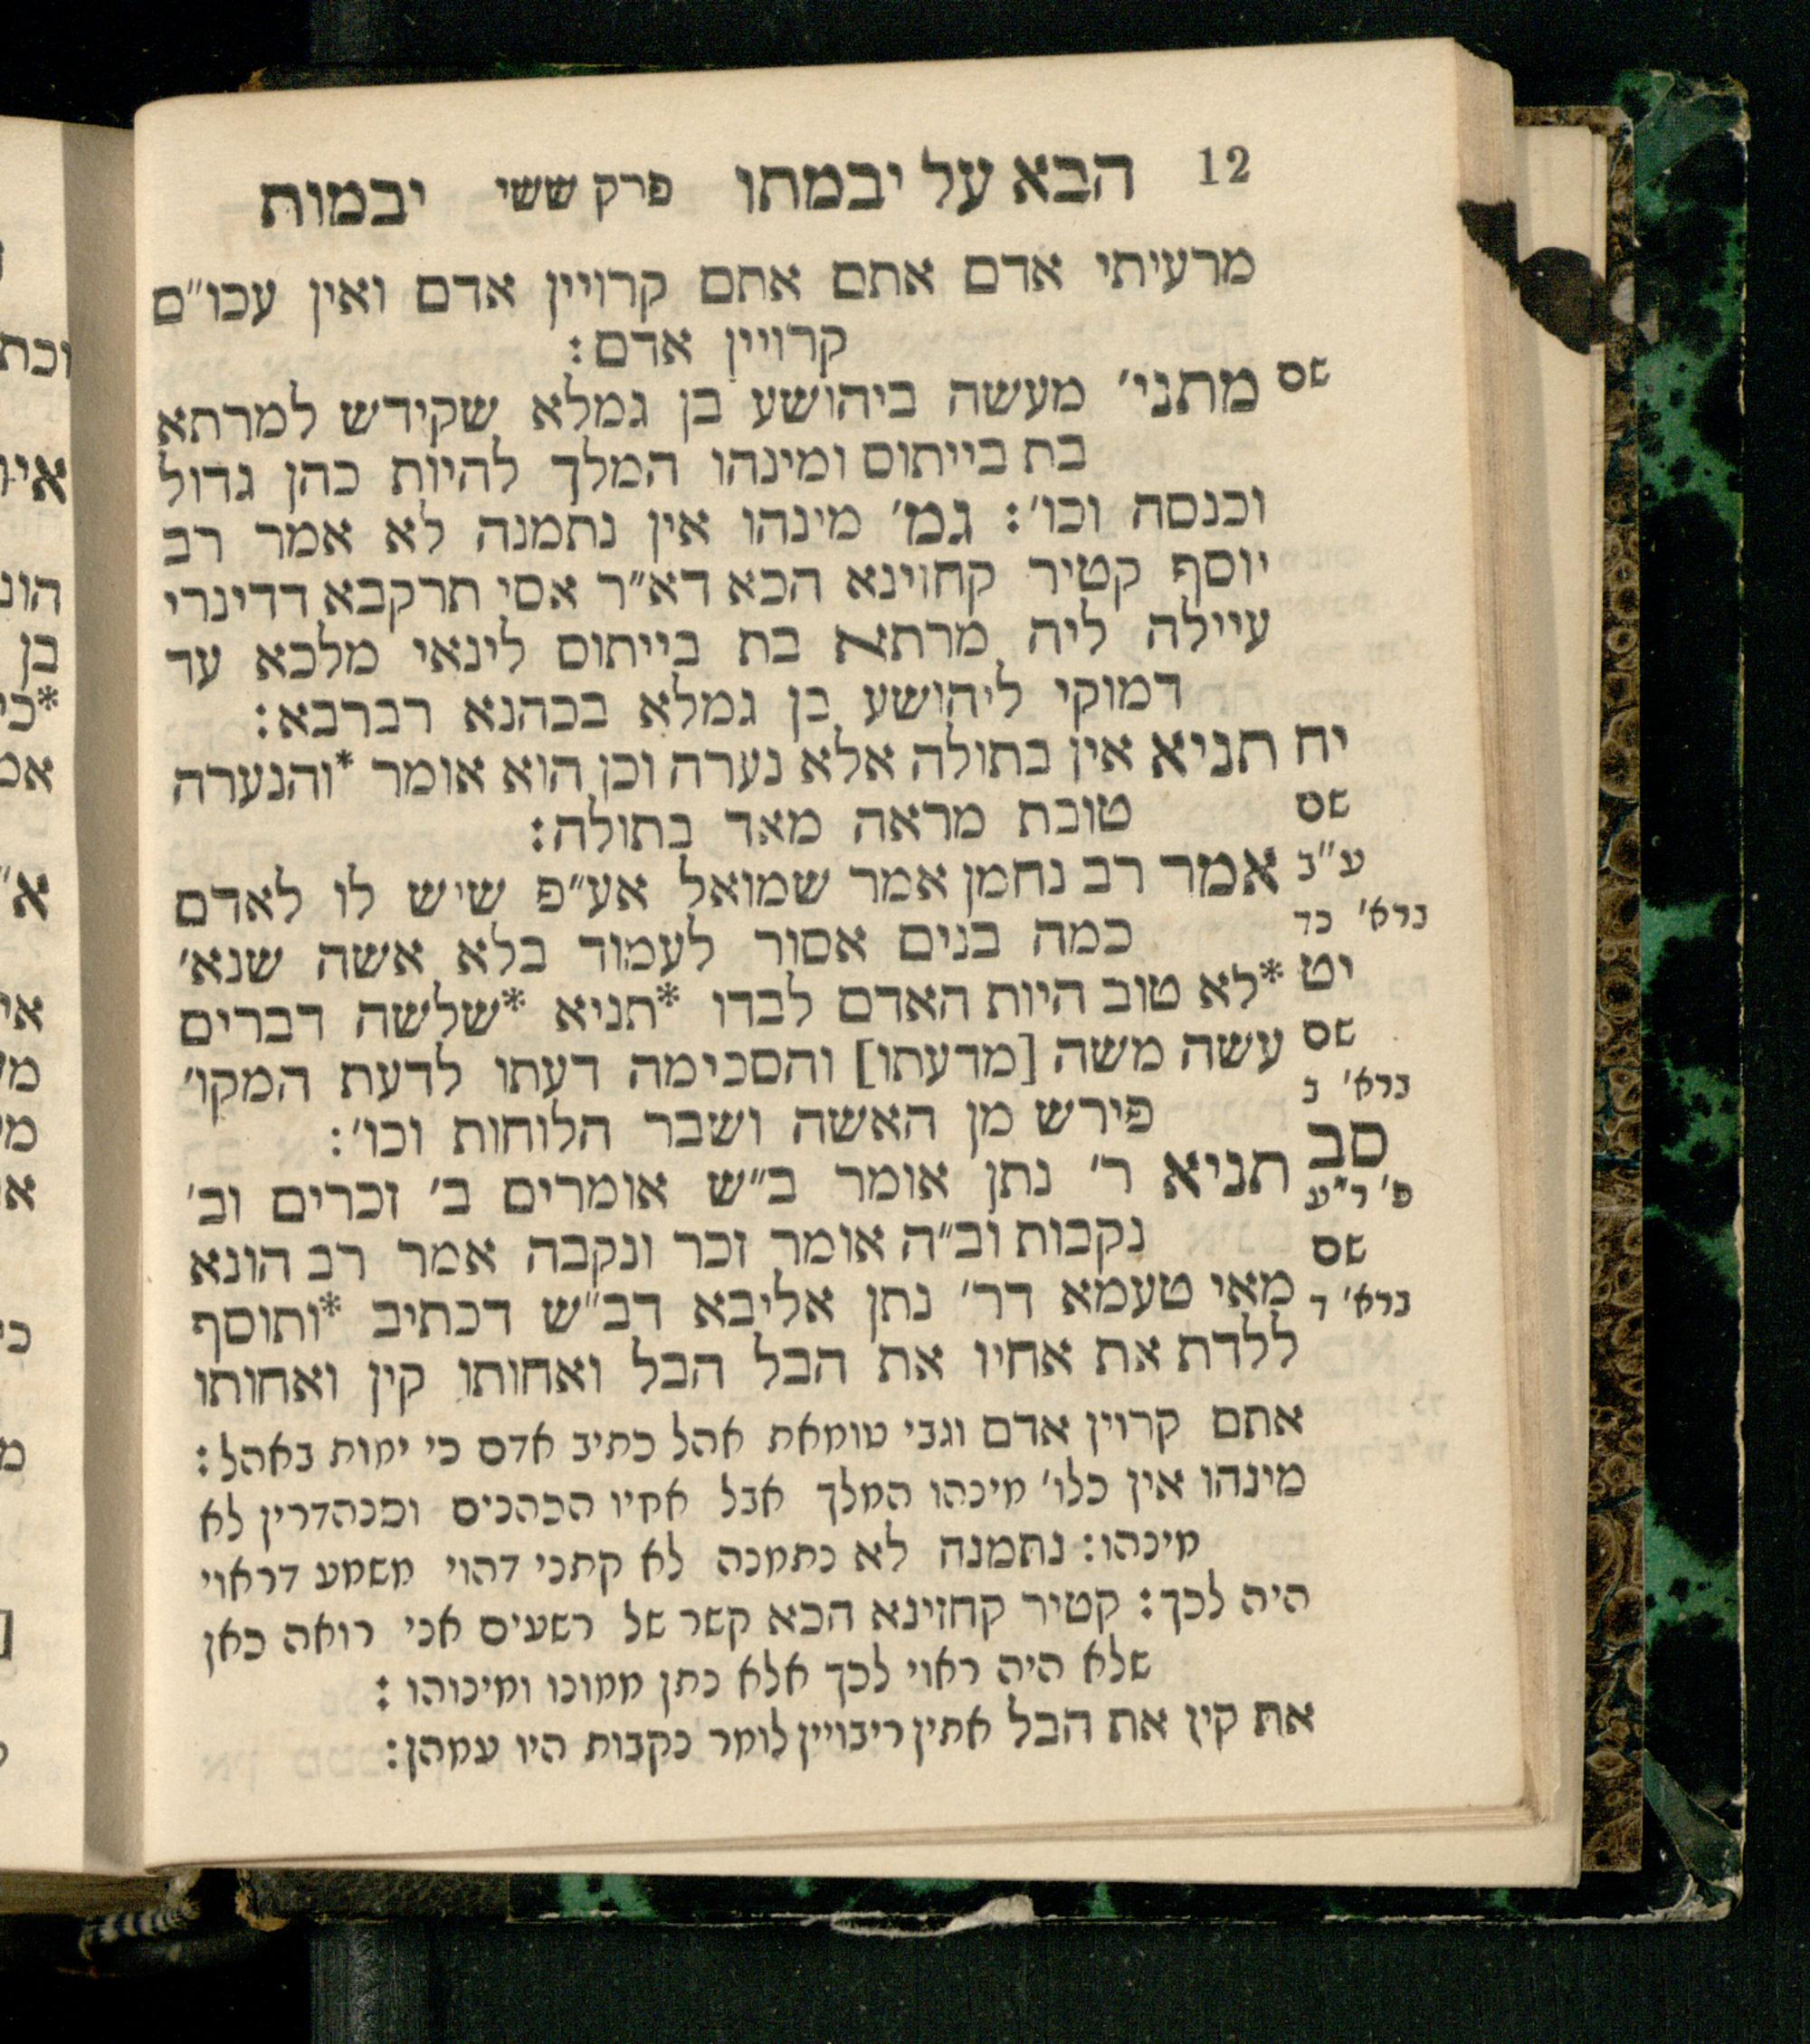 12 הבא על יבמתו פרק ששי יבמות
מרעיתי אדם אתם אתם קרויין אדם ואין עכו״ם
קרויין אדם:
שם
מתני׳ מעשה ביהושע בן גמלא שקידש למרתא
בת בייתוס ומינהו המלך להיות כהן גדול
וכנסה וכו׳: גמ׳ מינהו אין נתמנה לא אמר רב
יוסף קטיר קחזינא הכא דא״ר אסי תרקבא דדינרי
עיילה ליה מרתא בת בייתוס לינאי מלכא עד
דמוקי ליהושע בן גמלא בכהנא רברבא:
יח
תניא אין בתולה אלא נערה וכן הוא אומר *והנערה
שם
טובת מראה מאד בתולה:
ע״ב
אמר רב נחמן אמר שמואל אע״פ שיש לו לאדם
ברא׳ כד
כמה בנים אסור לעמוד בלא אשה שנא׳
יט
*לא טוב היות האדם לבדו *תניא *שלשה דברים
שם
עשה משה [מדעתו] והסכימה דעתו לדעת המקו׳
ברא׳ ב
פירש מן האשה ושבר הלוחות וכו׳:
סב
תניא ר׳ נתן אומר ב״ש אומרים ב׳ זכרים וב׳
נקבות וב״ה אומר זכר ונקבה אמר רב הונא
שם
מאי טעמא דר׳ נתן אליבא דב״ש דכתיב *ותוסף
ברא׳ ד
ללדת את אחיו את הבל הבל ואחותו קין ואחותו
אתם קרוין אדם וגבי טומאת אהל כתיב אדם כי ימות באהל:
מינהו אין כלו׳ מינהו המלך אבל אחיו הכהנים וסנהדרין לא
מינהו: נתמנה לא נתמנה לא קתני דהוי משמע דראוי
היה לכך: קטיר קחזינא הכא קשר של רשעים אני רואה כאן
שלא היה ראוי לכך אלא נתן ממונו ומינוהו:
את קין את הבל אתין ריבויין לומר נקבות היו עמהן: